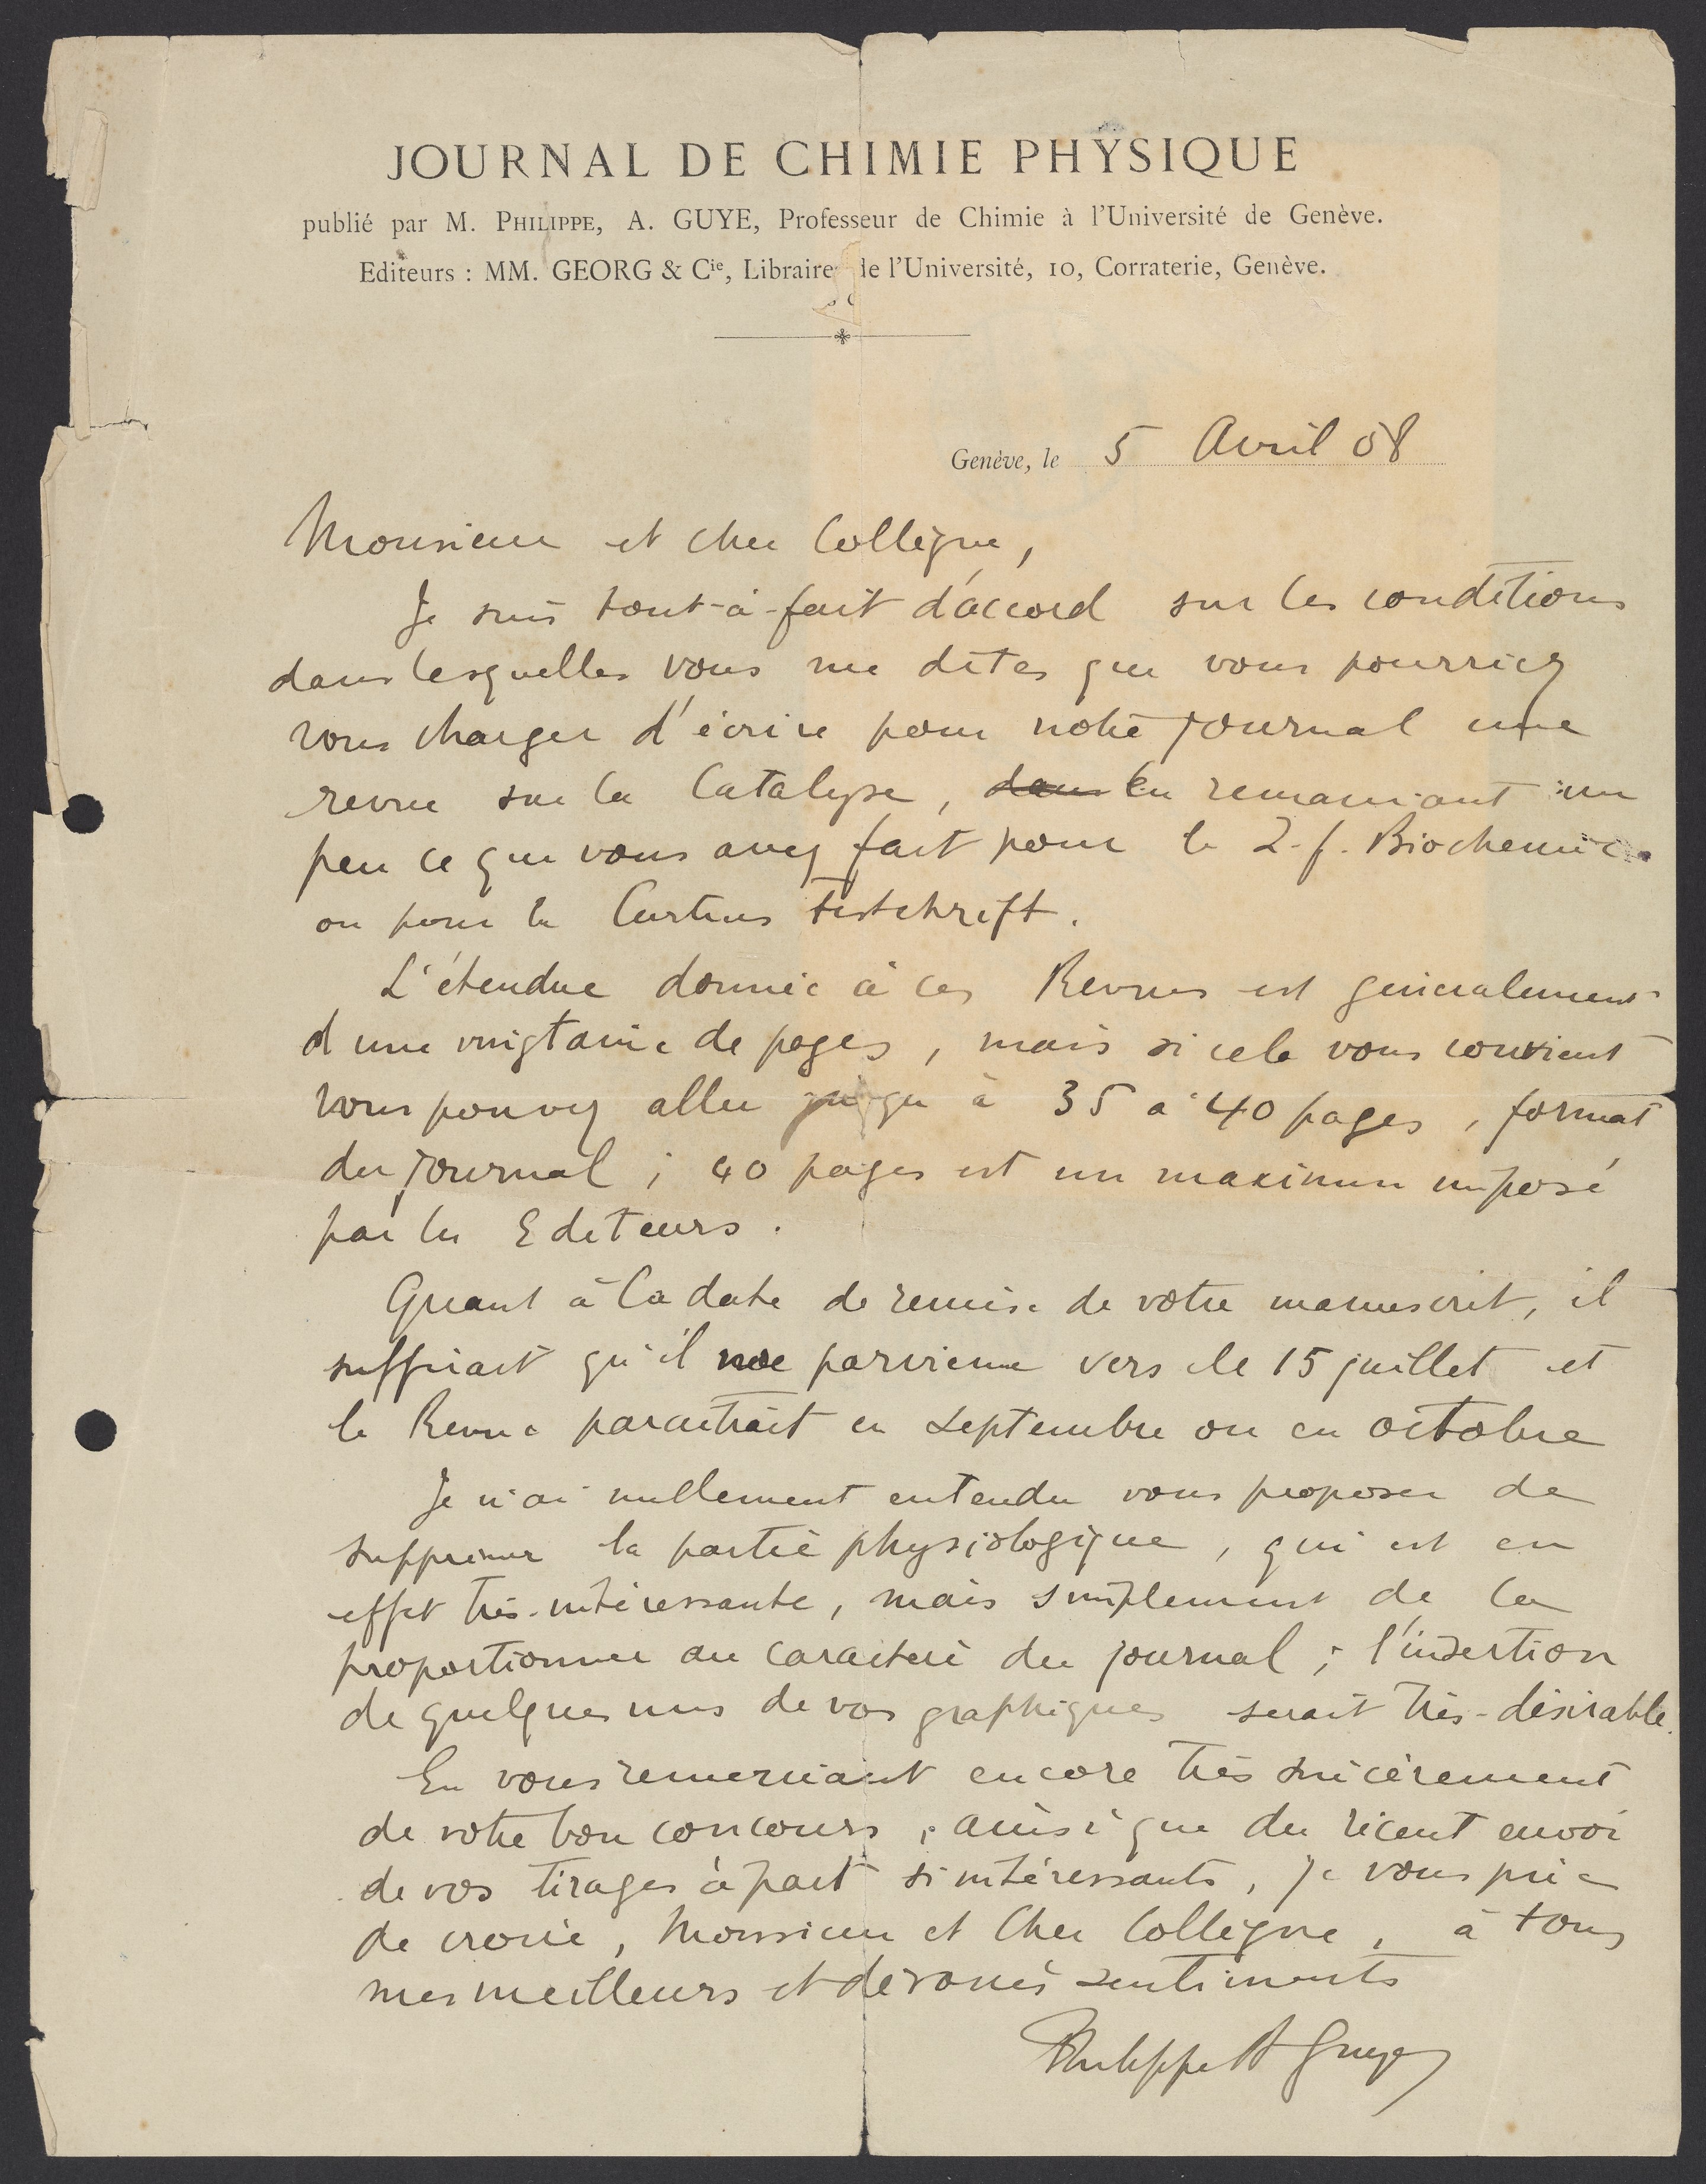 JOURNAL DE CHIMIE PHYSIQUE
publié par M. PHILIPPE, A. GUYE, Professeur de Chimie à l'Université de Genève.
Editeurs : MM. GEORG & Cie, Libraire de l'Université, 10, Corraterie, Genève.
Genève, le 5 Avril 08
Monsieur et cher Collègue,
Je suis tout-à-fait d'accord sur les conditions
dans lesquelles vous me dites que vous pourriez
vous charger d'écrire pour notre journal une
revue sur la Catalyse, dans en remaniant un
peu ce que vous avez fait pour la Z. f. Biochemie
ou pour la Curtius Festschrift.
L'étendue donnée à ces Revues est généralement
d'une vingtaine de pages, mais si cela vous convient
vous pouvez aller jusqu'à 35 à 40 pages, format
du journal ; 40 pages est un maximum imposé
par les Editeurs.
Quant à la date de remise de votre manuscrit, il
suffirait qu'il me parvienne vers le 15 juillet et
la Revue paraitrait en septembre ou en octobre
Je n'ai nullement entendu vous proposer de
supprimer la partie physiologique, qui est en
effet très-intéressante, mais simplement de la
proportionner au caractère du journal ; l'insertion
de quelques uns de vos graphiques serait très-désirable.
En vous remerciant encore très sincèrement
de votre bon concours, ainsi que du récent envoi
de vos tirages à part si intéressants, je vous prie
de croire, Monsieur et Cher Collègue, à tous
mes meilleurs et dévoués sentiments
Philippe A Guye